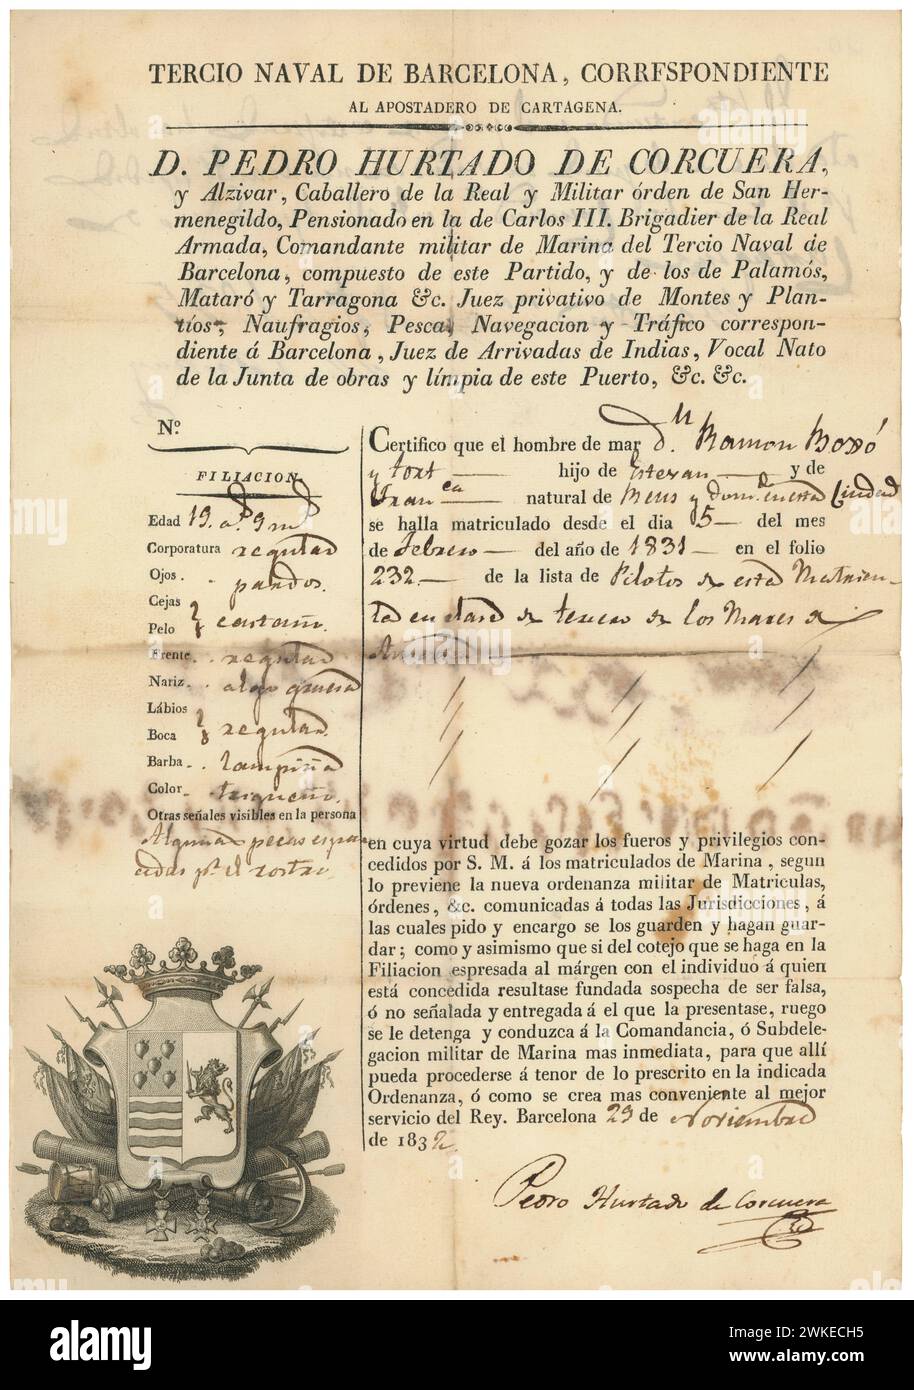 TERCIO NAVAL DE BARCELONA, CORRESPONDIENTE
AL APOSTADERO DE CARTAGENA.
D. PEDRO HURTADO DE CORCUERA,
y Alzivar, Caballero de la Real y Militar órden de San Her-
menegildo, Pensionado en la de Carlos III. Brigadier de la Real
Armada, Comandante militar de Marina del Tercio Naval de
Barcelona, compuesto de este Partido, y de los de Palamós,
Mataró y Tarragona &c. Juez privativo de Montes y Plan-
tíos, Naufragios, Pesca, Navegacion y Tráfico correspon-
diente á Barcelona, Juez de Arrivadas de Indias, Vocal Nato
de la Junta de obras y límpia de este Puerto, &c. &c.
Nº
FILIACION
Edad 19 aˢ 9 mˢ
Corporatura regular
Ojos . pardos.
Cejas
Pelo castaño
Frente . regular
Nariz . algo gruesa
Lábios
Boca regular
Barba . lampiña
Color . trigueño.
Otras señales visibles en la persona
Algunas pecas espar
cidas pʳ el rostro
Certifico que el hombre de mar Dⁿ Ramon
y hijo de Estevan y de
Franᶜᵃ natural de Reus y domº en esta Ciudad
se halla matriculado desde el dia 5 del mes
de Febrero del año de 1831 en el folio
232 de la lista de Pilotos de esta Matricu-
la en clase de tercero de los Mares de
en cuya virtud debe gozar los fueros y privilegios con-
cedidos por S. M. á los matriculados de Marina, segun
lo previene la nueva ordenanza militar de Matriculas,
órdenes, &c. comunicadas á todas las Jurisdicciones, á
las cuales pido y encargo se los guarden y hagan guar-
dar; como y asimismo que si del cotejo que se haga en la
Filiacion espresada al márgen con el individuo á quien
está concedida resultase fundada sospecha de ser falsa,
ó no señalada y entregada á el que la presentase, ruego
se le detenga y conduzca á la Comandancia, ó Subdele-
gacion militar de Marina mas inmediata, para que allí
pueda procederse á tenor de lo prescrito en la indicada
Ordenanza, ó como se crea mas conveniente al mejor
servicio del Rey. Barcelona 29 de Noviembre
de 1832
Pedro Hurtado de Corcuera
alamy
Image ID: 2WKECH5
www.alamy.com